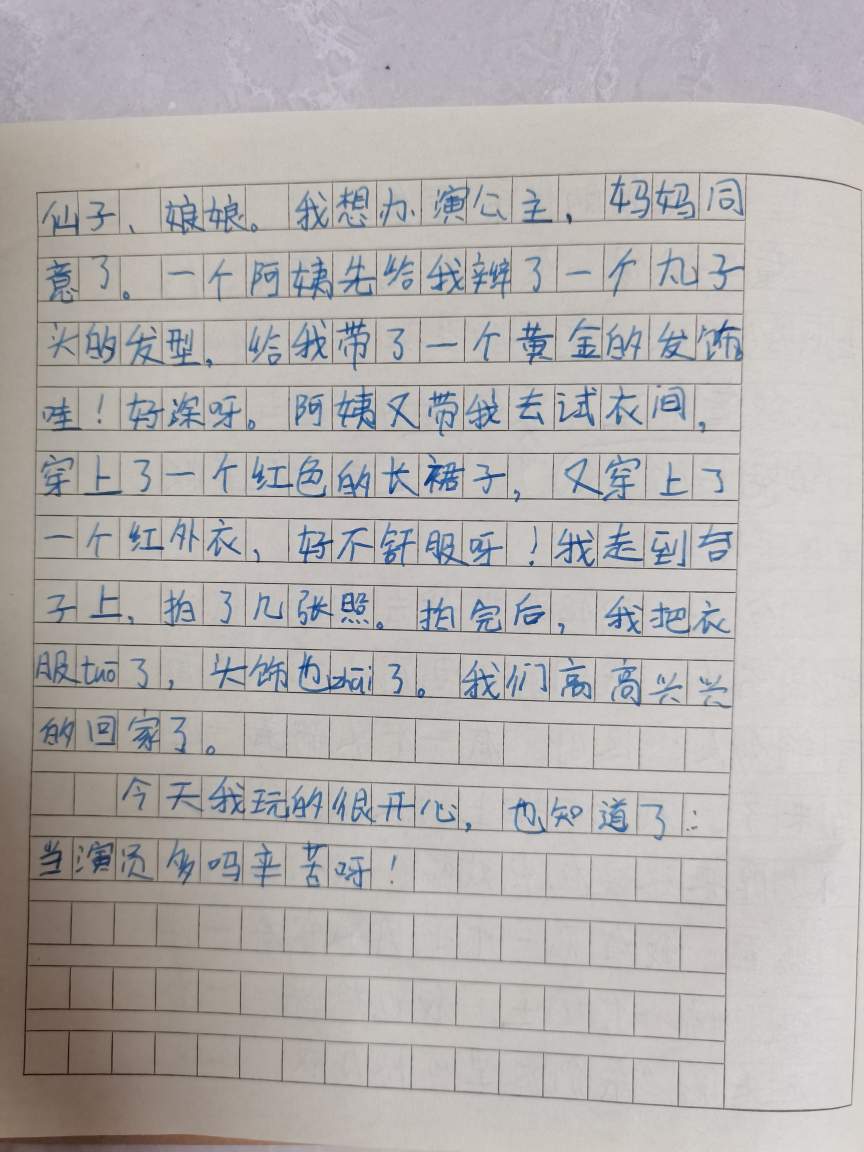 仙子、娘娘。我想办演公主，妈妈同
意了。一个阿姨先给我辫了一个丸子
头的发型，给我带了一个黄金的发饰
哇！好深呀。阿姨又带我去试衣间，
穿上了一个红色的长裙子，又穿上了
一个红外衣，好不舒服呀！我走到台
子上，拍了几张照。拍完后，我把衣
服tuō了，头饰也zhāi了。我们高高兴兴
的回家了。
今天我玩的很开心，也知道了：
当演员多吗辛苦呀！